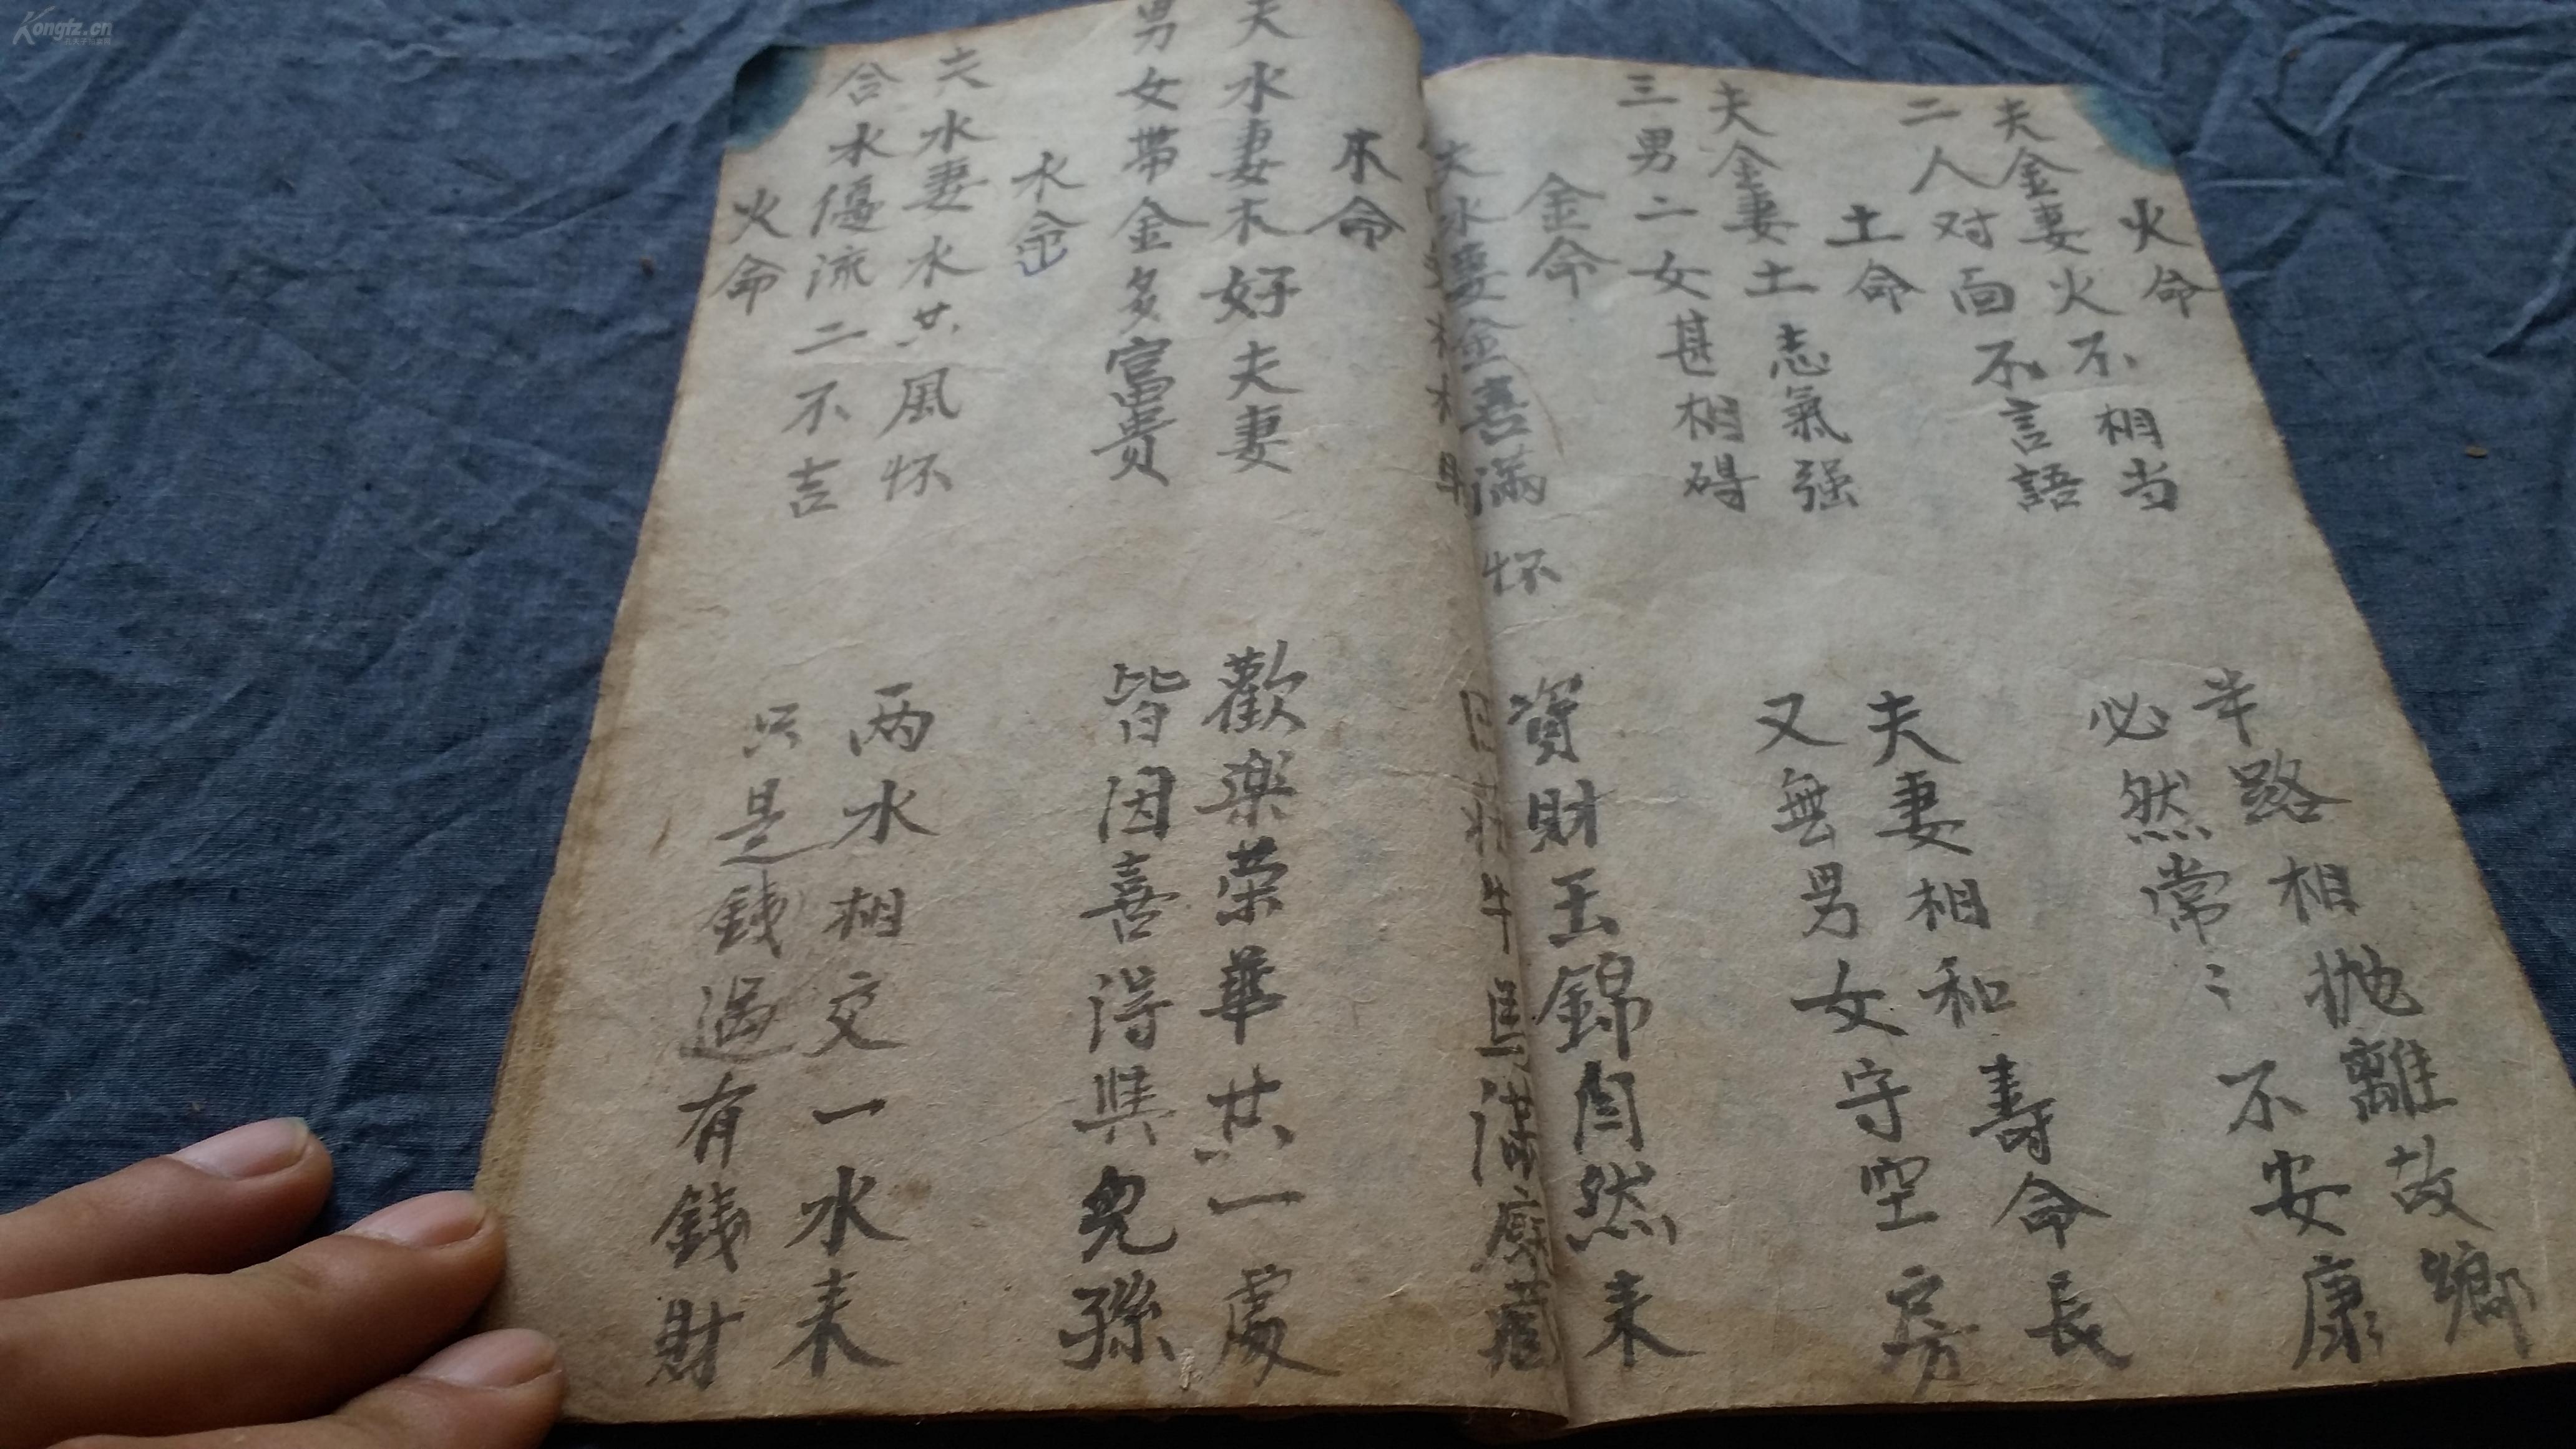 火命
夫金妻火不相当
半路相抛離故鄉
二人对面不言語
必然常〻不安康
土命
夫金妻土志氣强
夫妻相和壽命長
三男二女甚相碍
又無男女守空房
金命
夫水妻金喜滿怀
資財玉錦自然来
木命
夫水妻木好夫妻
歡楽荣華共一處
男女帶金多富贵
皆因喜得與兒孫
水命
夫水妻水共風怀
两水相交一水来
合水優流二不吉
只是錢過有錢財
火命
Kongfz.cn